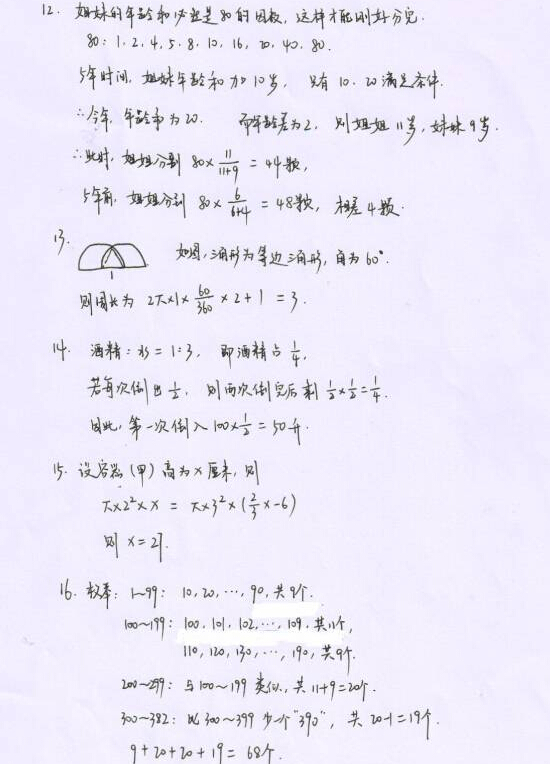 12. 姐妹的年龄和必然是80的因数, 这样才能刚好分完.
80: 1, 2, 4, 5, 8, 10, 16, 20, 40, 80.
5年时间, 姐妹年龄和加10岁, 只有10、20满足条件.
∴今年, 年龄和为20. 而年龄差为2, 则姐姐11岁, 妹妹9岁.
∴此时, 姐姐分到 80×11/(11+9) = 44颗,
5年前, 姐姐分到 80×6/(6+4) = 48颗, 相差4颗.
13.
1
如图, 三角形为等边三角形, 角为60°.
则周长为 2π×1×60/360×2+1 = 3.
14. 酒精:水 = 1:3, 即酒精占1/4,
若每次倒出1/2, 则两次倒完后剩1/2×1/2=1/4.
因此, 第一次倒入100×1/2=50升.
15. 设容器(甲)高为x厘米, 则
π×2²×x = π×3²×(2/3x-6)
则 x=27.
16. 枚举: 1~99: 10, 20, …, 90, 共9个.
100~199: 100, 101, 102, …, 109, 共11个,
110, 120, 130, …, 190, 共9个.
200~299: 与100~199类似, 共11+9=20个.
300~382: 比300~399少一个"390", 共20-1=19个.
9+20+20+19=68个.